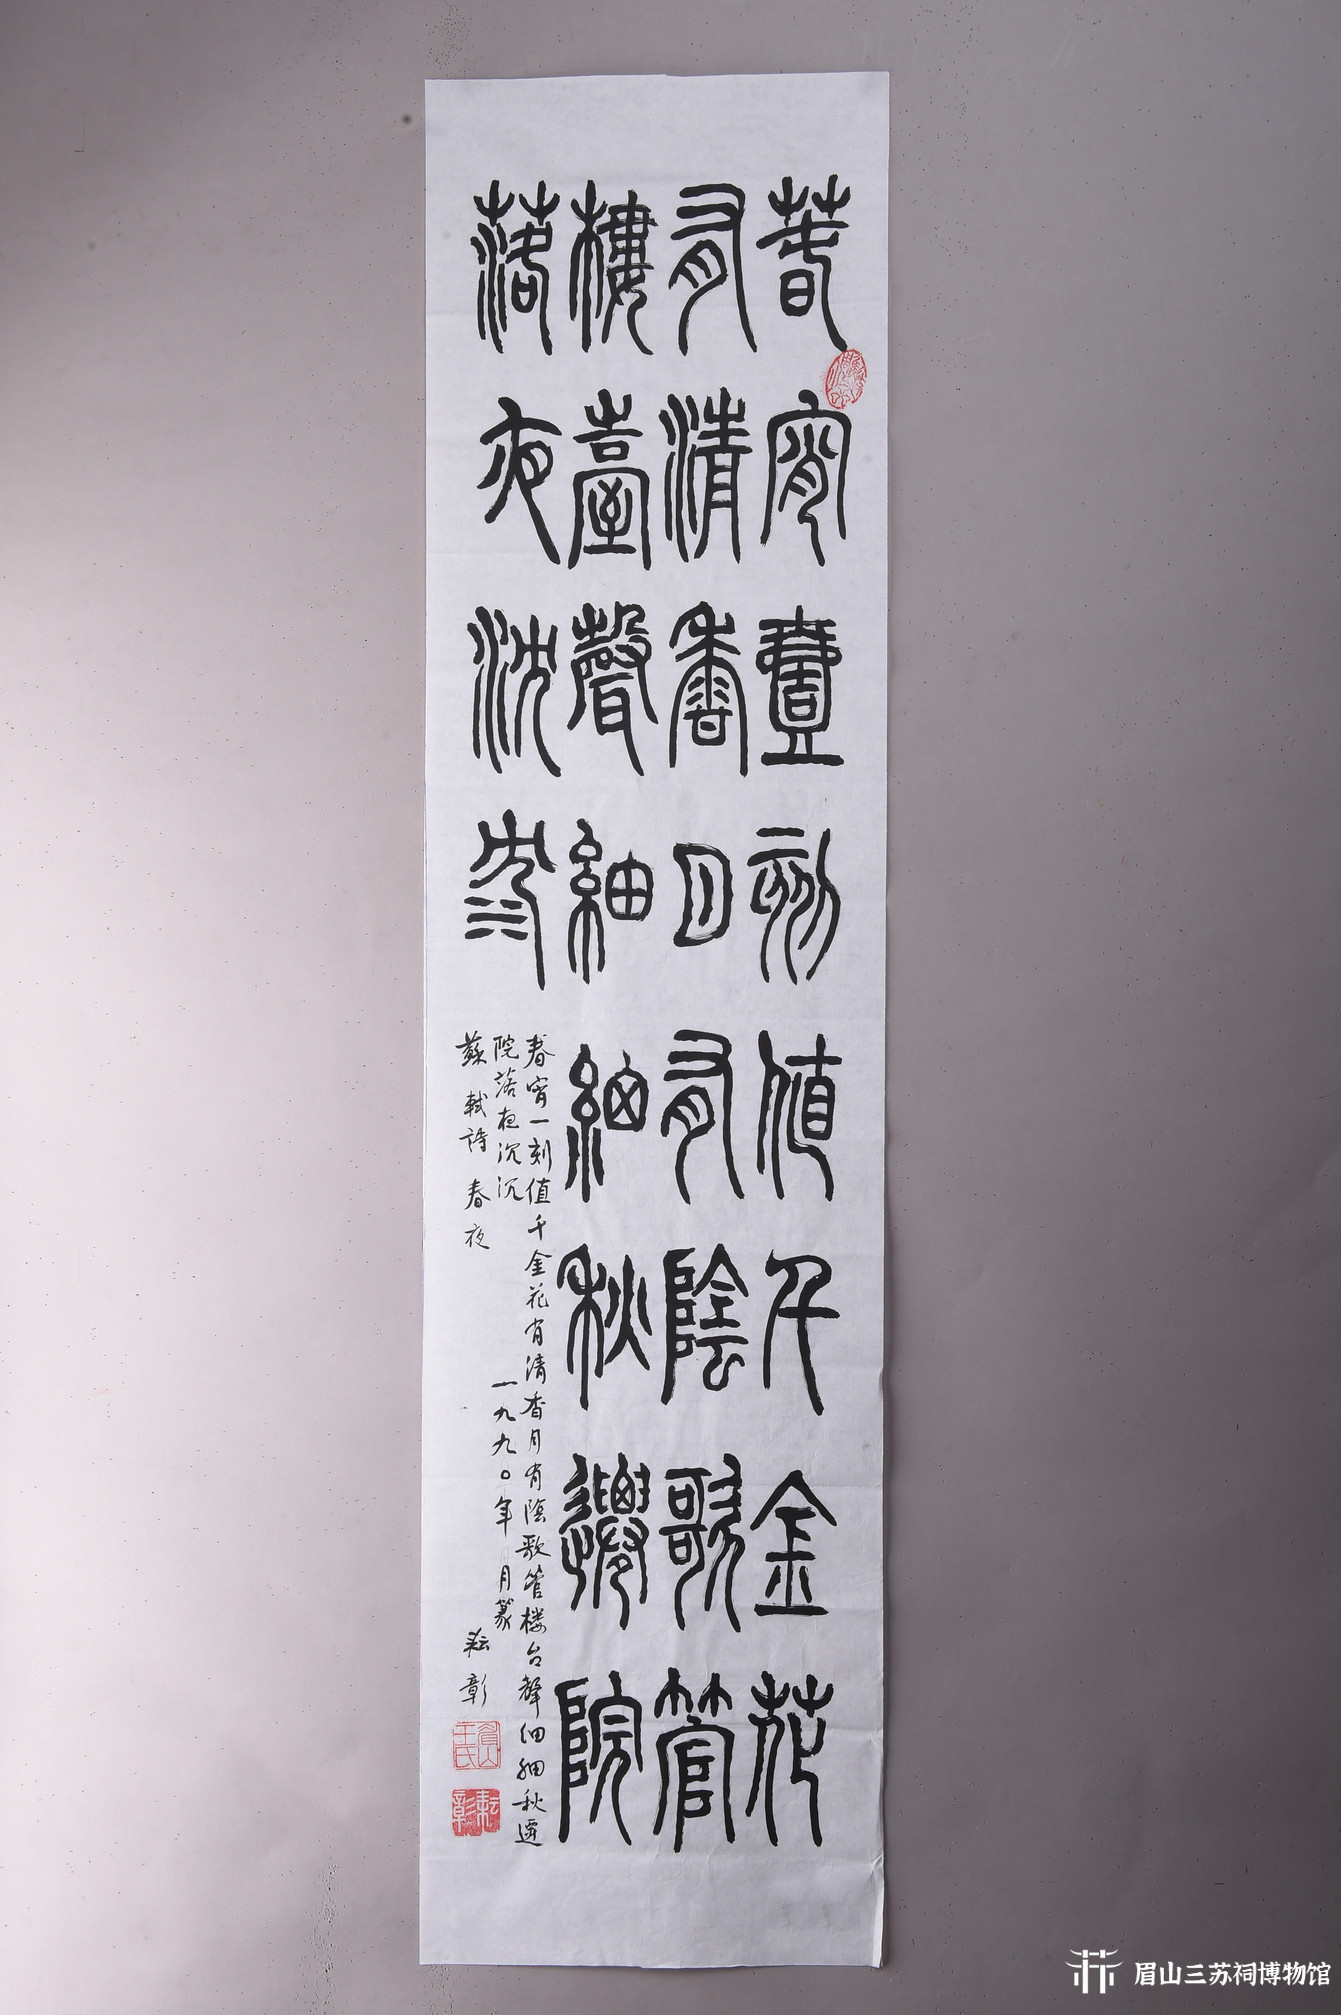 春宵壹刻值千金花
有清香月有陰歌管
樓臺聲細細秋遷院
落夜沈沈
春宵一刻值千金花有清香月有陰歌管楼台聲细細秋遷
院落夜沉沉
一九九〇年 月篆
蘇軾詩 春夜
耘彰
眉山王氏
耘彰
眉山三苏祠博物馆